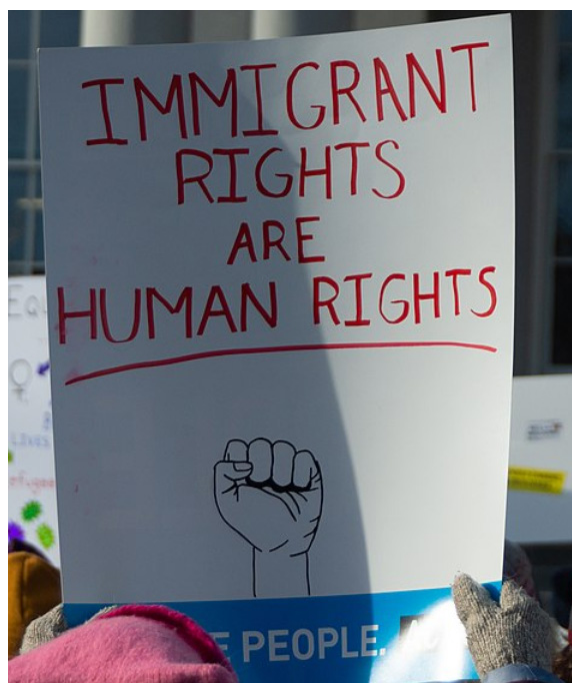 IMMIGRANT
RIGHTS
ARE
HUMAN RIGHTS
PEOPLE.